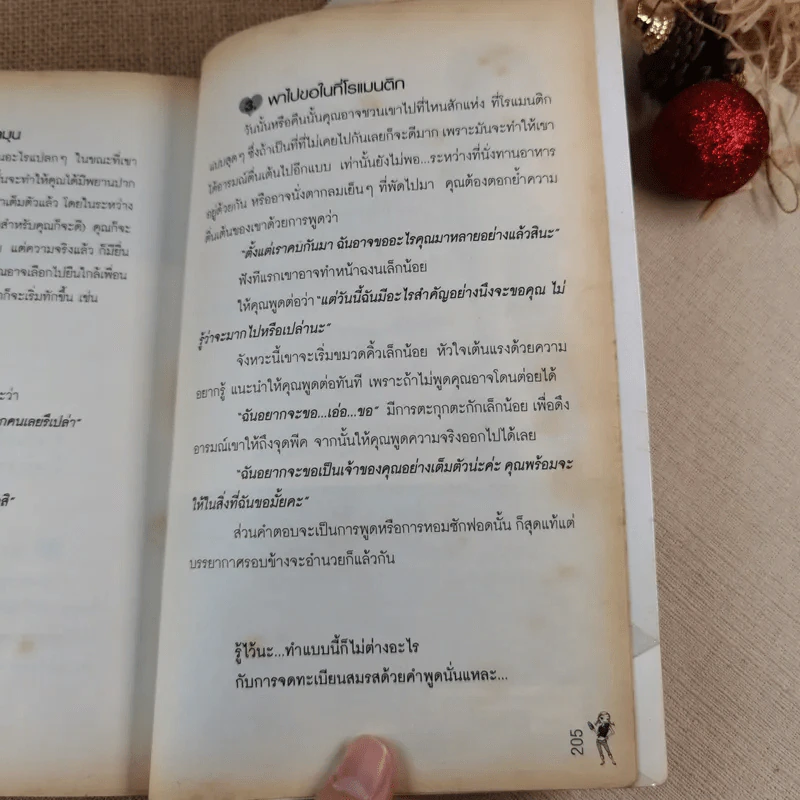 นอะไรแปลกๆ ในขณะที่เขา
นจะทำให้คุณได้มีพยานปาก
าเต็มตัวแล้ว โดยในระหว่าง
สำหรับคุณก็จะดี) คุณก็จะ
แต่ความจริงแล้ว ก็มียื่น
ณอาจเลือกไปยืนใกล้เพื่อน
าก็จะเริ่มทักขึ้น เช่น
ะว่า
กคนเลยรึเปล่า"
สิ"
3. พาไปขอในที่โรแมนติก
วันนั้นหรือคืนนั้นคุณอาจชวนเขาไปที่ไหนสักแห่ง ที่โรแมนติก
แบบสุดๆ ซึ่งถ้าเป็นที่ที่ไม่เคยไปกันเลยก็จะดีมาก เพราะมันจะทำให้เขา
ได้อารมณ์ตื่นเต้นไปอีกแบบ เท่านั้นยังไม่พอ...ระหว่างที่นั่งทานอาหาร
อยู่ด้วยกัน หรืออาจนั่งตากลมเย็นๆ ที่พัดไปมา คุณต้องตอกย้ำความ
ตื่นเต้นของเขาด้วยการพูดว่า
"ตั้งแต่เราคบกันมา ฉันอาจขออะไรคุณมาหลายอย่างแล้วสินะ"
ฟังทีแรกเขาอาจทำหน้าฉงนเล็กน้อย
ให้คุณพูดต่อว่า "แต่วันนี้ฉันมีอะไรสำคัญอย่างนึงจะขอคุณ ไม่
รู้ว่าจะมากไปหรือเปล่านะ"
จังหวะนี้เขาจะเริ่มขมวดคิ้วเล็กน้อย หัวใจเต้นแรงด้วยความ
อยากรู้ แนะนำให้คุณพูดต่อทันที เพราะถ้าไม่พูดคุณอาจโดนต่อยได้
"ฉันอยากจะขอ...เอ่อ...ขอ" มีการตะกุกตะกักเล็กน้อย เพื่อดึง
อารมณ์เขาให้ถึงจุดพีค จากนั้นให้คุณพูดความจริงออกไปได้เลย
"ฉันอยากจะขอเป็นเจ้าของคุณอย่างเต็มตัวน่ะค่ะ คุณพร้อมจะ
ให้ในสิ่งที่ฉันขอมั้ยคะ"
ส่วนคำตอบจะเป็นการพูดหรือการหอมซักฟอดนั้น ก็สุดแท้แต่
บรรยากาศรอบข้างจะอำนวยก็แล้วกัน
รู้ไว้นะ...ทำแบบนี้ก็ไม่ต่างอะไร
กับการจดทะเบียนสมรสด้วยคำพูดนั่นแหละ...
205